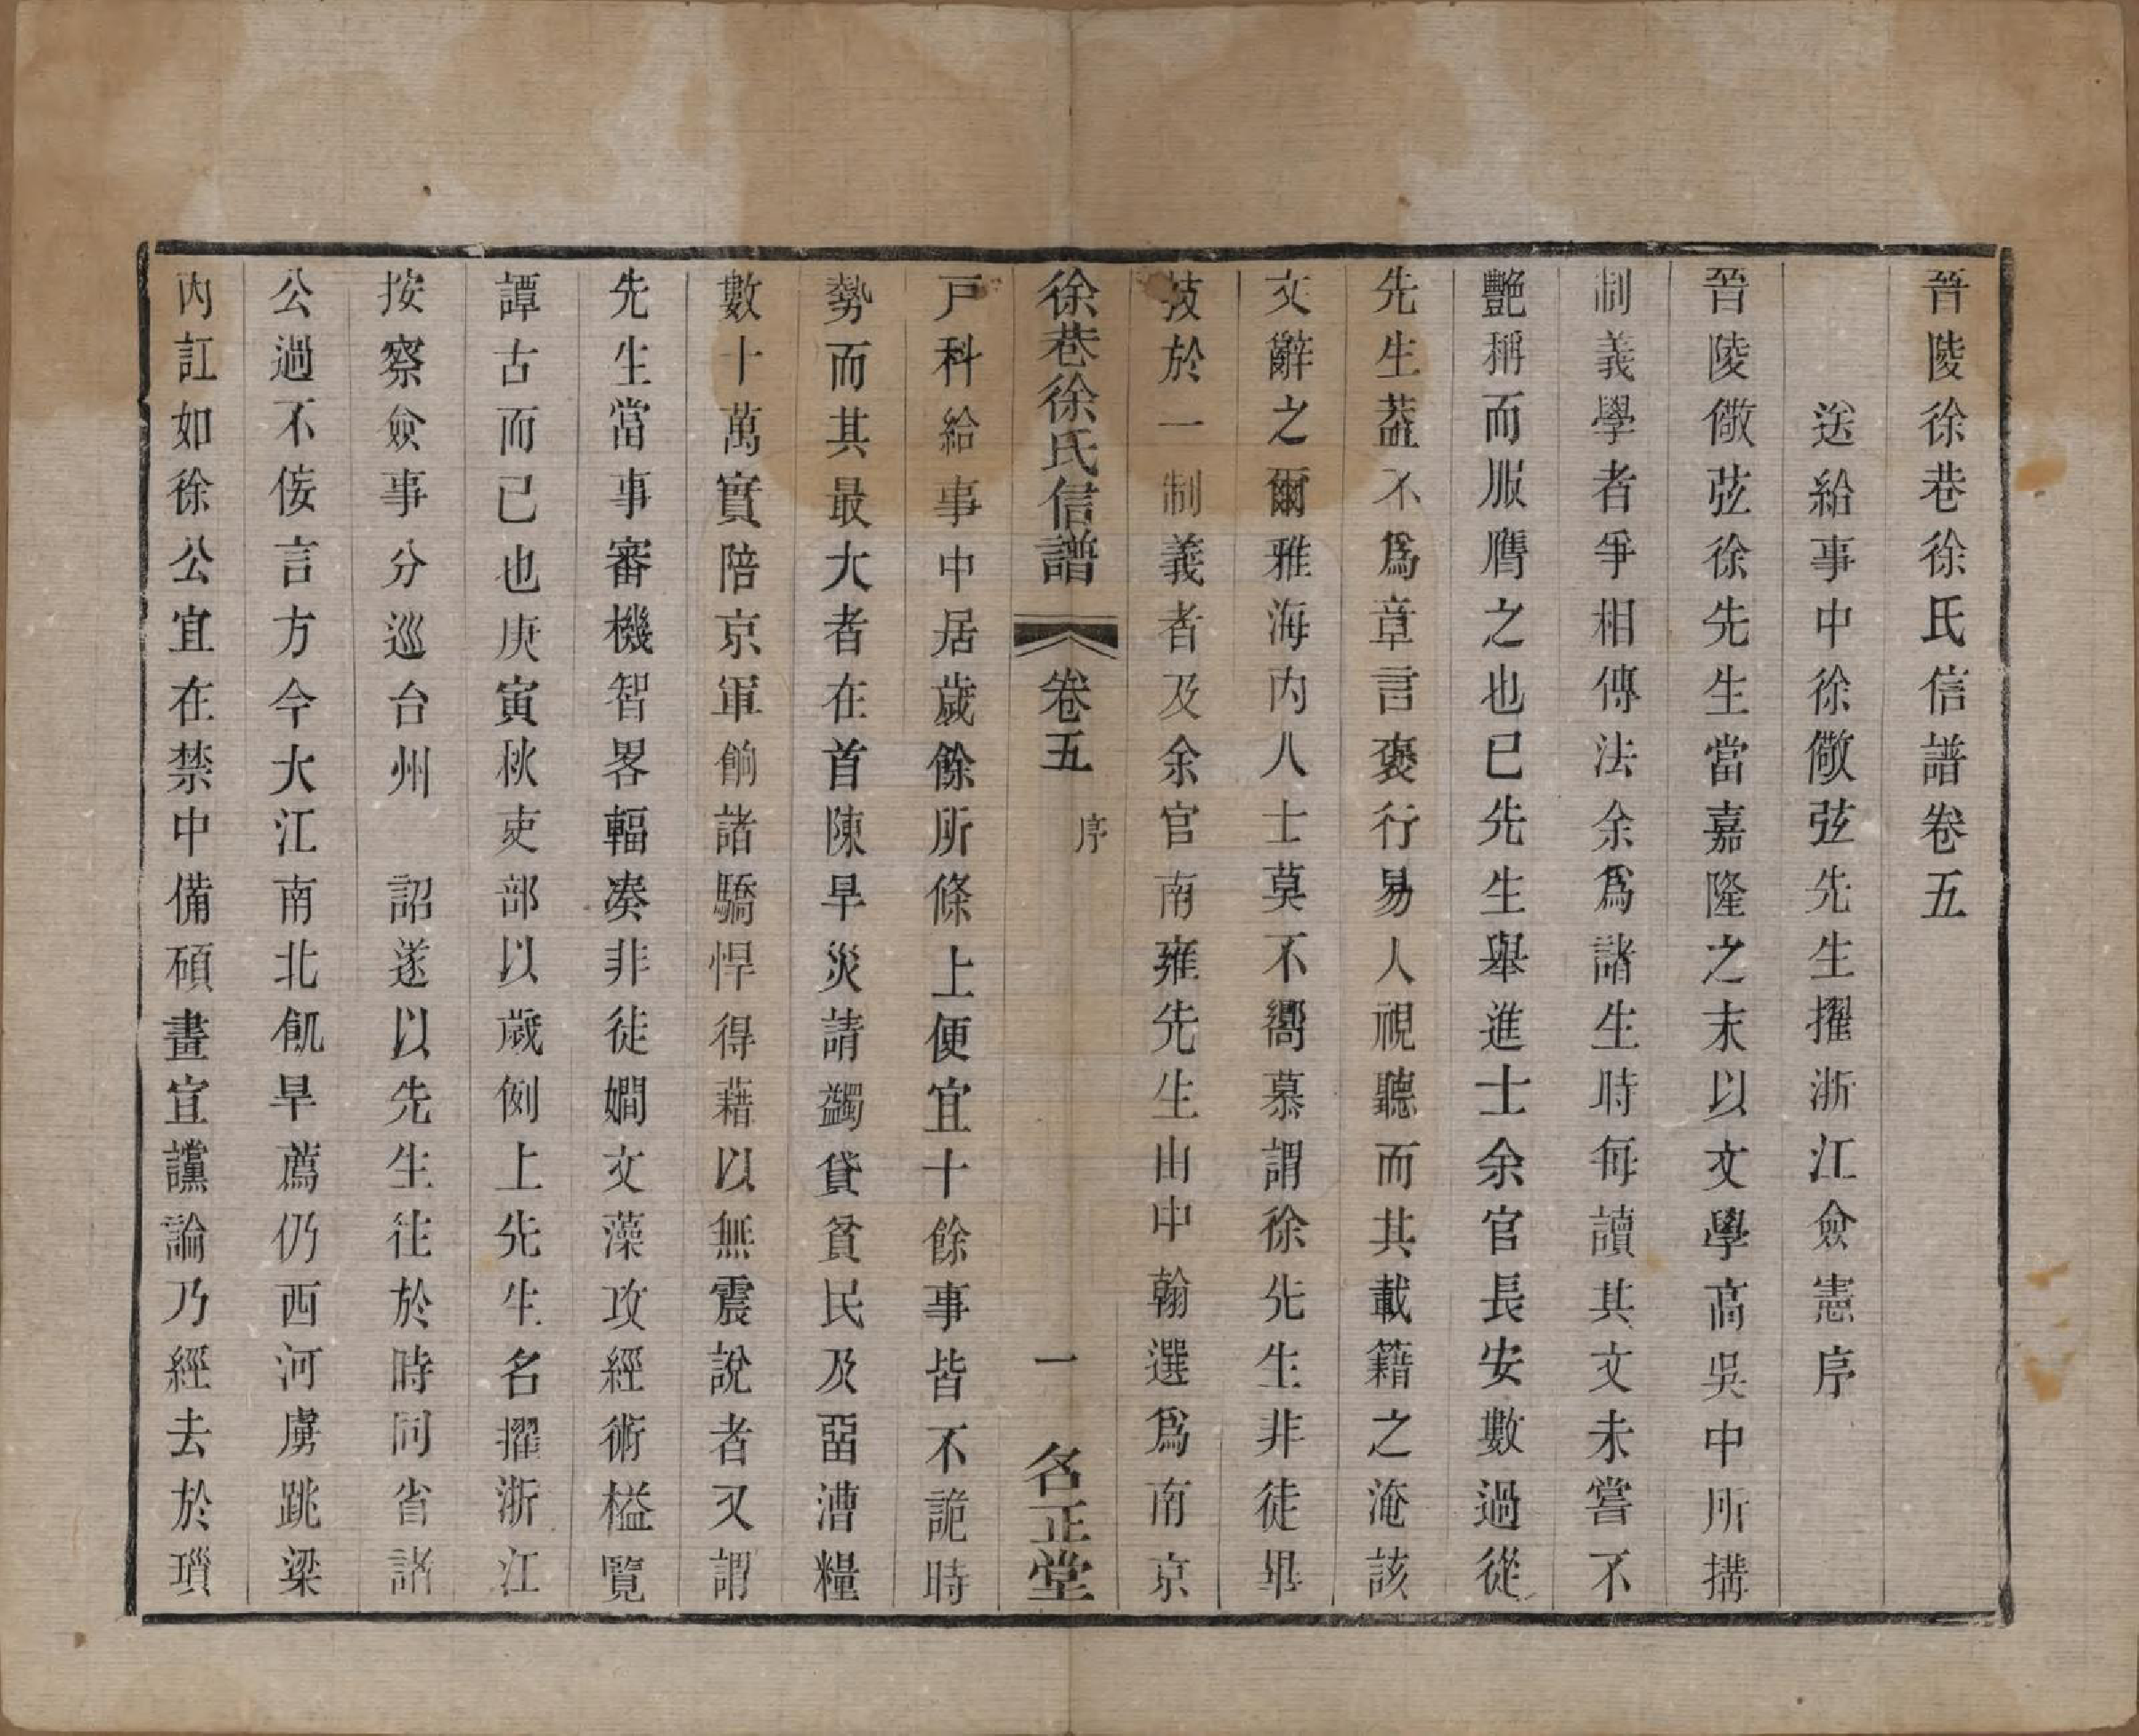 晉陵徐巷徐氏信譜卷五
送給事中徐儆弦先生擢浙江僉憲序
晉陵儆弦徐先生當嘉隆之末以文學高吳中所搆
制義學者爭相傳法余爲諸生時每讀其文未嘗不
艷稱而服膺之也已先生舉進士余官長安數過從
先生葢不爲章言褒行易人視聽而其載籍之淹該
文辭之爾雅海内人士莫不嚮慕謂徐先生非徒畢
技於一制義者及余官南雍先生由中翰選爲南京
徐巷徐氏信譜 卷五 序 一 名正堂
戸科給事中居歲餘所條上便宜十餘事皆不詭時
勢而其最大者在首陳旱災請蠲貸貧民及畱漕糧
數十萬實陪京軍餉諸驕悍得藉以無震說者又謂
先生當事審機智畧輻凑非徒嫺文藻攻經術榏覽
譚古而已也庚寅秋吏部以歲例上先生名擢浙江
按察僉事分巡台州 詔遂以先生往於時同省諸
公過不佞言方今大江南北飢旱薦仍西河虜跳梁
内訌如徐公宜在禁中備碩畫宜讜論乃經去於瑣